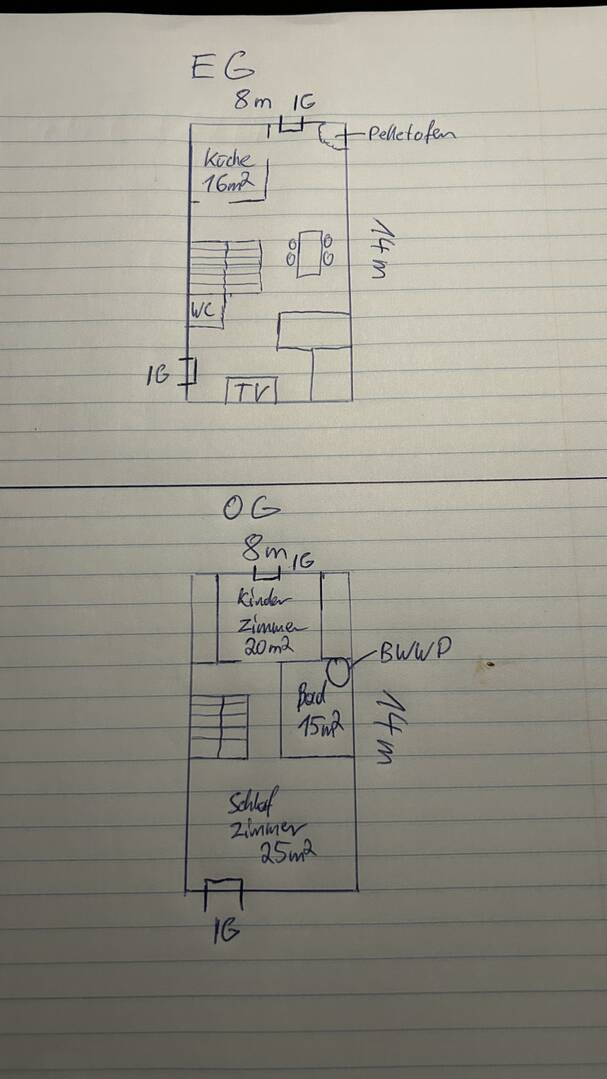 EG
8m IG
Pelletofen
Küche
16m²
14m
WC
IG
TV
OG
8m IG
Kinder
zimmer
20m²
BWWP
Bad
15m²
14m
Schlaf
zimmer
25m²
IG